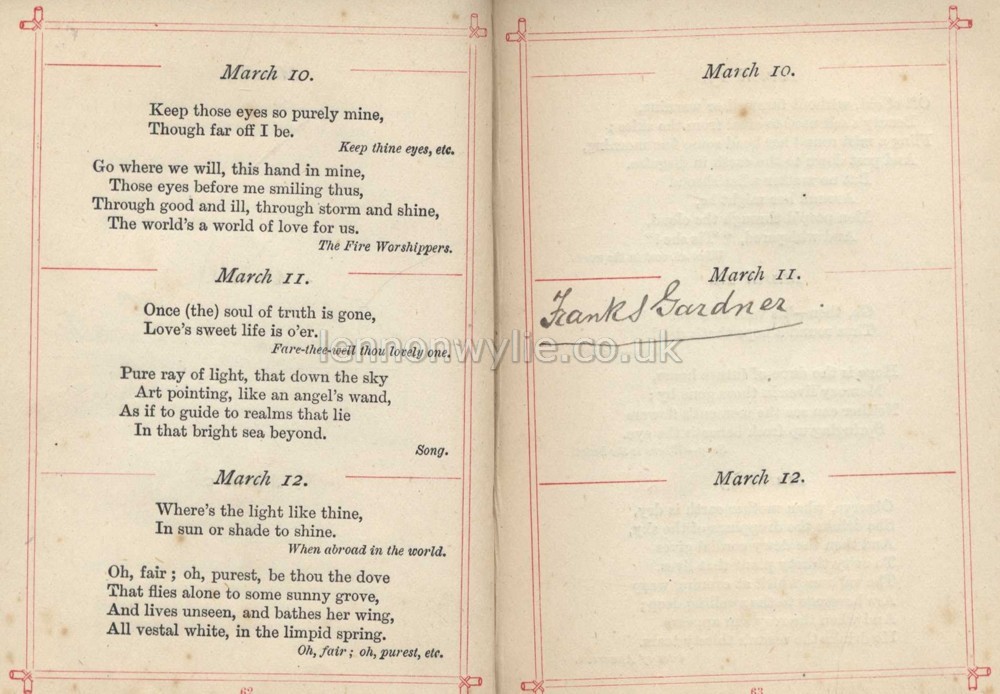 March 10.
Keep those eyes so purely mine,
Though far off I be.
Keep thine eyes, etc.
Go where we will, this hand in mine,
Those eyes before me smiling thus,
Through good and ill, through storm and shine,
The world's a world of love for us.
The Fire Worshippers.
March 11.
Once (the) soul of truth is gone,
Love's sweet life is o'er.
Fare-thee-well thou lovely one.
Pure ray of light, that down the sky
Art pointing, like an angel's wand,
As if to guide to realms that lie
In that bright sea beyond.
Song.
March 12.
Where's the light like thine,
In sun or shade to shine.
When abroad in the world.
Oh, fair; oh, purest, be thou the dove
That flies alone to some sunny grove,
And lives unseen, and bathes her wing,
All vestal white, in the limpid spring.
Oh, fair; oh, purest, etc.
62
March 10.
March 11.
Frank S Gardner
March 12.
63
lennonwylie.co.uk